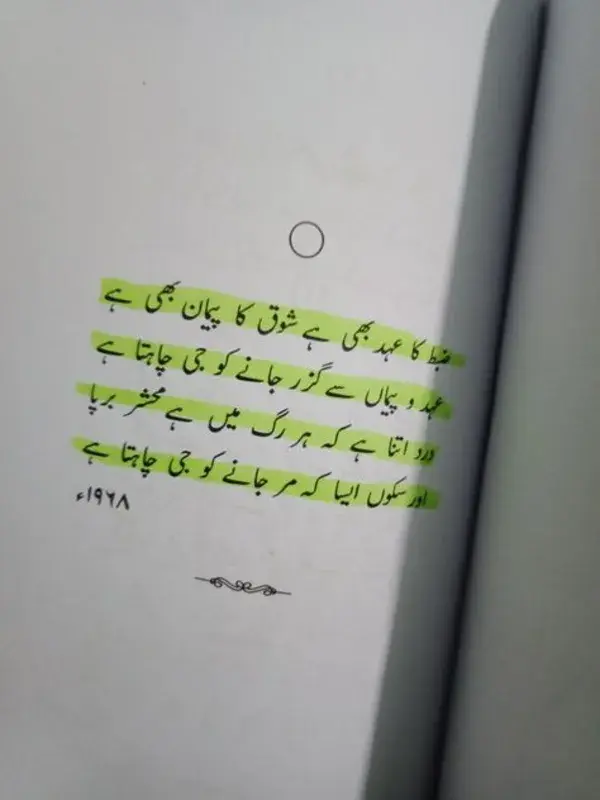 ضبط کا عہد بھی ہے شوق کا پیمان بھی ہے
عہد و پیماں سے گزر جانے کو جی چاہتا ہے
درد اتنا ہے کہ ہر رگ میں ہے محشر برپا
اور سکوں ایسا کہ مر جانے کو جی چاہتا ہے
۱۹۶۸ء